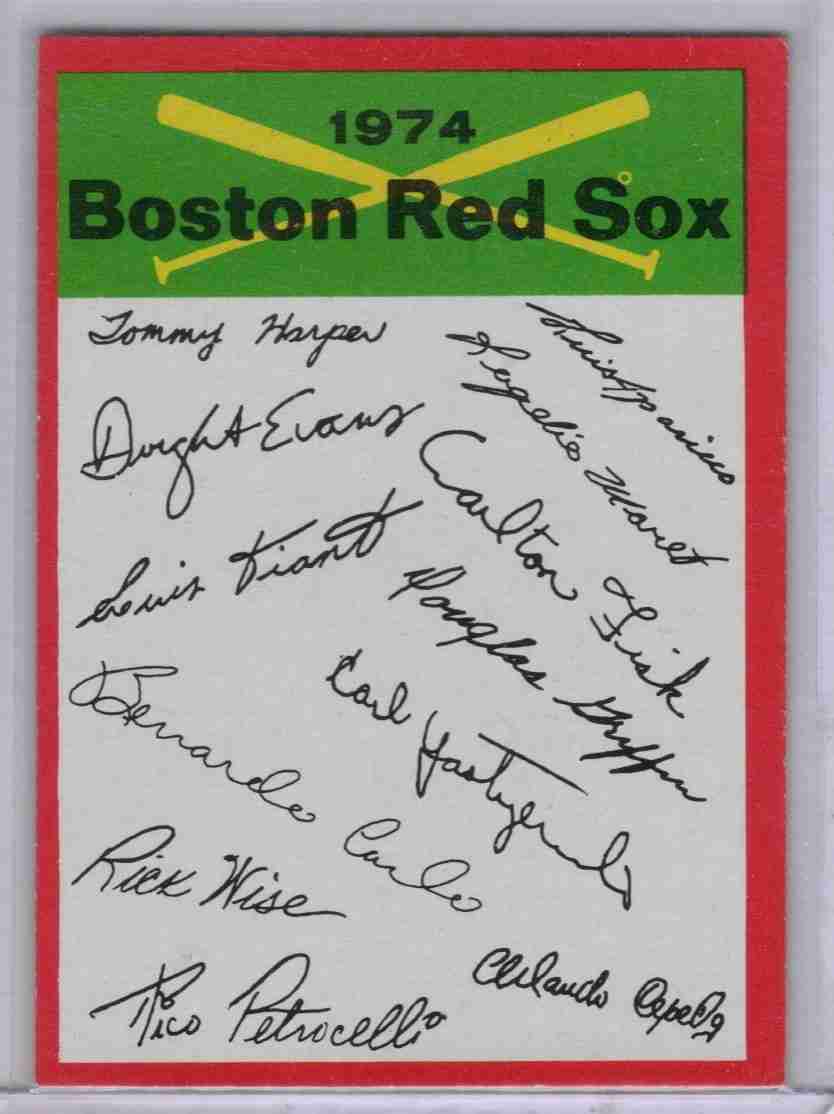 1974
Boston Red Sox
Tommy Harper
Luis Aparicio
Rogelio Moret
Dwight Evans
Carlton Fisk
Luis Tiant
Douglas Griffin
Bernardo Carbo
Carl Yastrzemski
Rick Wise
Rico Petrocelli
Orlando Cepeda